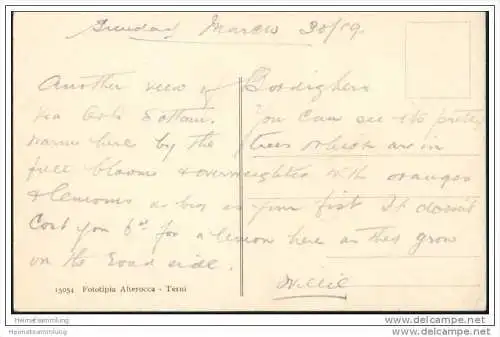 Sunday March 30/19.
Another view of Bordighera
via bottom. You can see its pretty
warm here by the trees which are in
full blooms & overweighted with oranges
& lemons as big as your fist It doesn't
Cost you 6d for a lemon here as they grow
on the road side.
Willie
15054 Fototipia Alterocca - Terni
Heimatsammlung
Heimatsammlung
delcampe.net